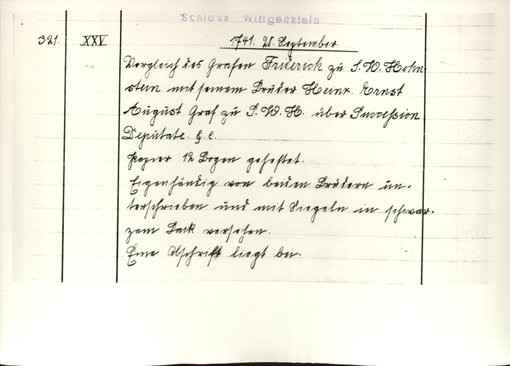 Schloss Wittgenstein
321. XXV 1741. 21. September
Vergleich des Grafen Friderich zu S. W. Hohn-
stein mit seinem Bruder Heinr. Ernst
August Graf zu S. W. H. über Succession
Deputate. &c.
Papier 12 Bogen geheftet.
Eigenhändig von beiden Brüdern un-
terschrieben und mit Siegeln in schwar-
zem Lack versehen.
Eine Abschrift liegt bei.